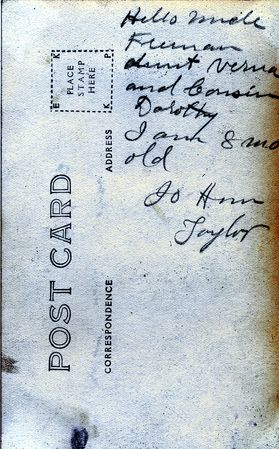 Hello Uncle
Freeman
Aunt Verna
and Cousin
Dorothy
I am 8 mo
old
Jo Ann
Taylor
EKKP
PLACE
STAMP
HERE
ADDRESS
POST CARD
CORRESPONDENCE